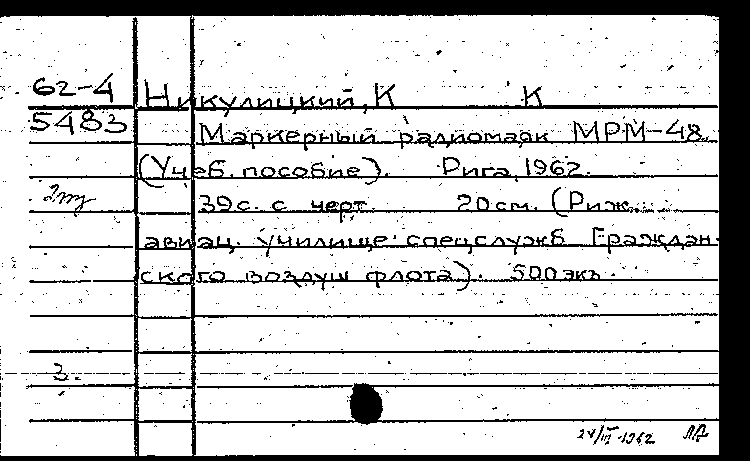 62-4 Никулицкий, К К
5483 Маркерный радиомаяк МРМ-48.
(Учеб. пособие). Рига, 1962.
39 с. с черт. 20 см. (Риж.
авиац. училище спецслужб Граждан-
ского воздуш флота). 500 экз.
3.
24/III-1962